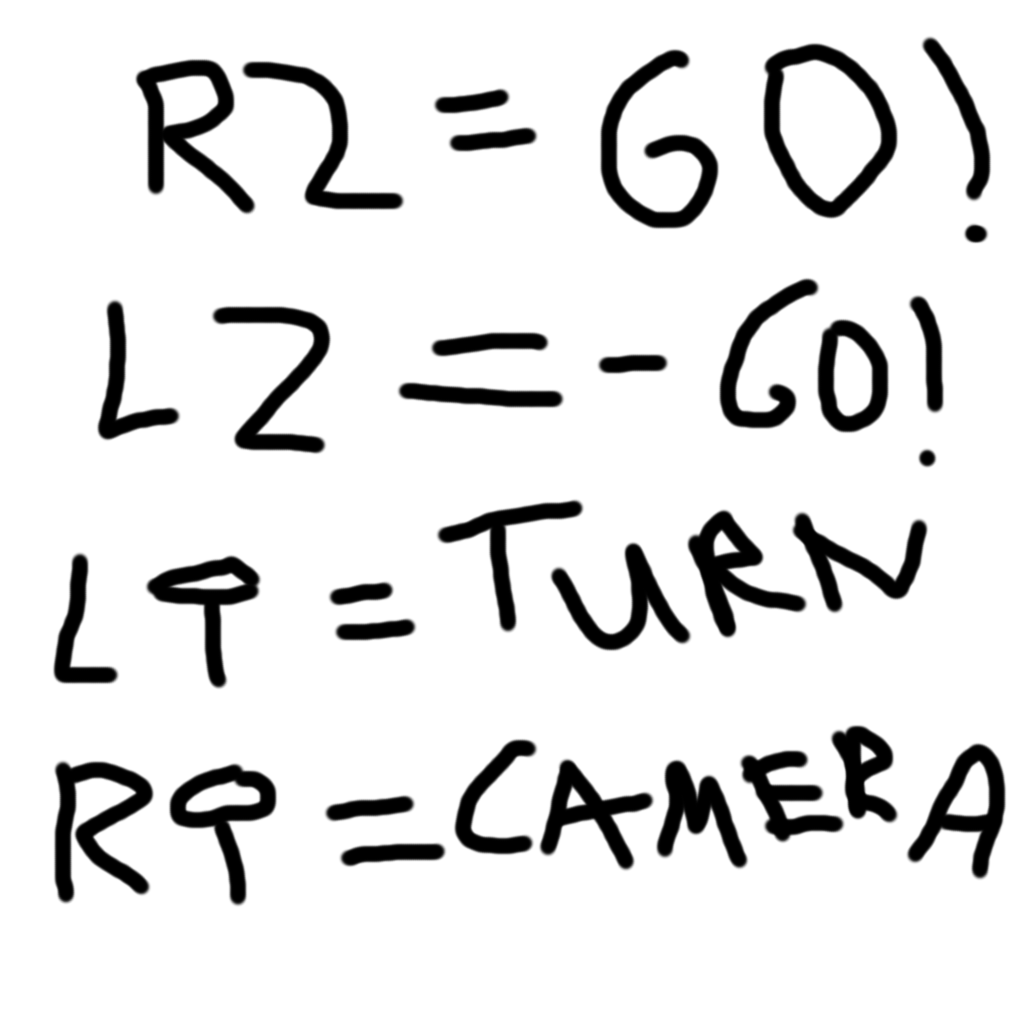 R2 = GO!
L2 = -GO!
L = TURN
R = CAMERA